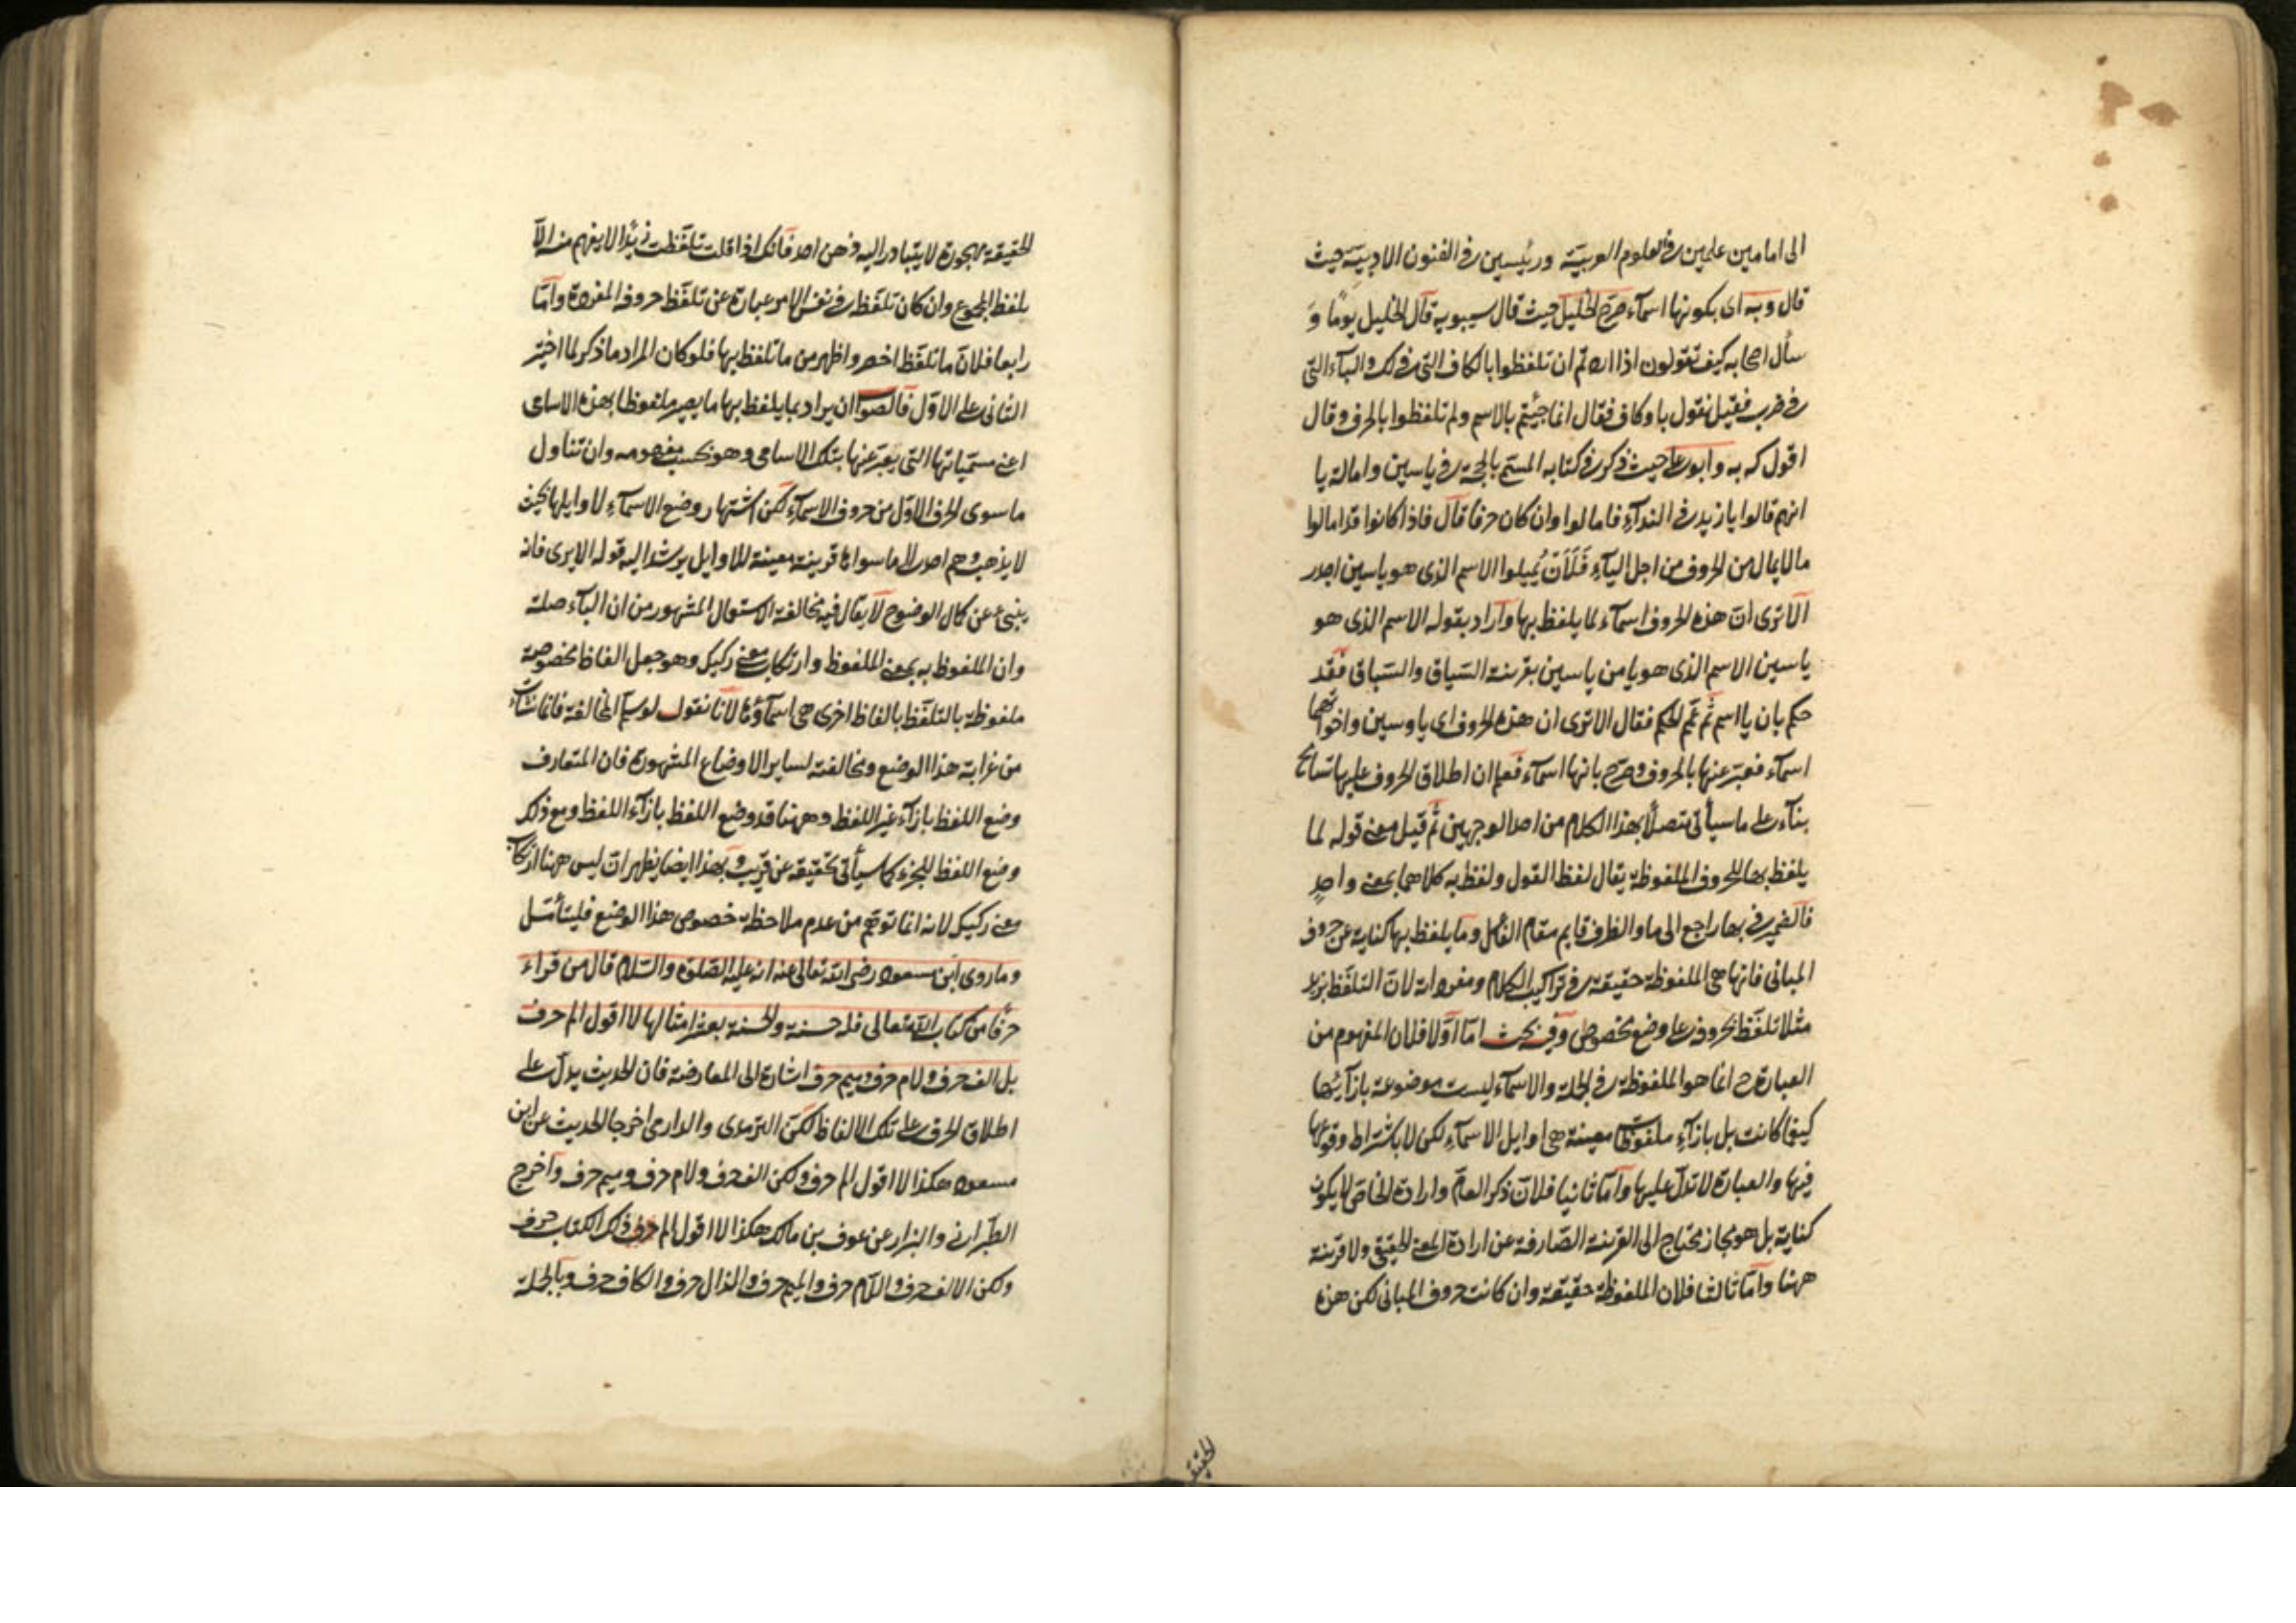 الى امامين علمين فى العلوم العربيّة ورئيسين فى الفنون الادبيّة حيث
قال وبه اى بكونها اسمآء صرّح الخليل حيث قال سيبويه قال الخليل يومًا وَ
سأل اصحابه كيف تقولون اذا اردتم ان تلفظوا بالكاف التى فى لك والبآء التى
فى ضرب فقيل نقول با وكاف فقال انما جئتم بالاسم ولم تلفظوا بالحرف وقال
اقول كه به وابو على حيث ذكر فى كتابه المسمّى بالحجّة فى ياسين وامالة يا
انهم قالوا يا زيد فى الندآء فامالوا وان كان حرفا قال فاذا كانوا قد امالوا
مالا يمال من الحروف من اجل اليآء فَلَاَنْ يُميلوا الاسم الذى هو ياسين اجدر
الا ترى انّ هذه الحروف اسمآء لما يلفظ بها واراد بقوله الاسم الذى هو
ياسين الاسم الذى هو يا من ياسين بقرينة السّياق والسّباق فقد
حكم بان يا اسم ثم عمّم الحكم فقال الا ترى ان هذه الحروف اى يا وسين واخواتهما
اسمآء فعبّر عنها بالحروف وصرّح بانها اسمآء فعلم ان اطلاق الحروف عليها تسامح
بنآء على ما سيأتى متصلًا بهذا الكلام من احد الوجهين ثم قيل معنى قوله لما
يلفظ بها للحروف الملفوظة يقال لفظ القول ولفظ به كلاهما بمعنى واحدٍ
فالضمير فى بها راجع الى ما والظرف قايم مقام الفاعل وما يلفظ بها كناية عن حروف
المبانى فانها هى الملفوظة حقيقة فى تراكيب الكلام ومفرداته لانّ التلفّظ بزيد
مثلا تلفّظ بحروفه على وضع مخصوص وفيه بحث امّا اوّلا فلان المفهوم من
العبارة ح انما هو الملفوظة فى الجملة والاسمآء ليست موضوعة بازآئها
كيفما كانت بل بازآء ملفوظات معينة هى اوايل الاسمآء لكن لا باشتراط وقوعها
فيها والعبارة لا تدلّ عليها وامّا ثانيا فلانّ ذكر العامّ وارادة الخاصّ لا يكون
كناية بل هو مجاز محتاج الى القرينة الصّارفة عن ارادة المعنى الحقيقى ولا قرينة
ههنا وامّا ثالثا فلان الملفوظة حقيقة وان كانت حروف المبانى لكن هذه
الحقيقة
الحقيقة مهجورة لا يتبادر اليه ذهن احد فانك اذا قلت تلفّظت زيدًا لا يفهم منه الّا
تلفظ المجموع وان كان تلفّظه فى نفس الامر عبارة عن تلفّظ حروفه المفردة وامّا
رابعا فلانّ ما تلفّظ اخصر واظهر من ما تلفظ بها فلو كان المراد ما ذكر لما اختير
الثانى على الاوّل فالصّواب ان يراد بما يلفظ بها ما يصير ملفوظا بهذه الاسامى
اعنى مسمّياتها التى يعبّر عنها بتلك الاسامى وهو بحسب مفهومه وان تناول
ما سوى الحرف الاوّل من حروف الاسمآء لكن اشتهار وضع الاسمآء لاوايلها بحيث
لا يذهب وهم احد الى ما سواها قرينة معينة للاوايل يرشد اليه قوله الا يرى فانه
ينبئ عن كمال الوضوح لا يقال فيه مخالفة الاستعمال المشهور من ان البآء صلة
وان الملفوظ به بمعنى الملفوظ وارتكاب معنى ركيك وهو جعل الفاظ مخصوصة
ملفوظة بالتلفّظ بالفاظ اخرى هى اسمآؤها لانا نقول لو سلّم المخالفة فانما نشأت
من غرابة هذا الوضع ومخالفته لساير الاوضاع المشهورة فان المتعارف
وضع اللفظ بازآء غير اللفظ وههنا قد وضع اللفظ بازآء اللفظ ومع ذلك
وضع اللفظ للجزء كما سيأتى تحقيقه عن قريب وبهذا ايضا يظهر ان ليس ههنا ارتكاب
معنى ركيك لانه انما توهّم من عدم ملاحظة خصوص هذا الوضع فليتأمّل
وما روى ابن مسعود رضى الله تعالى عنه انه عليه الصّلوة والسّلام قال من قراء
حرفًا من كتاب الله تعالى فله حسنة والحسنة بعشر امثالها لا اقول الم حرف
بل الف حرف ولام حرف وميم حرف اشارة الى المعارضة فان الحديث يدلّ على
اطلاق الحرف على تلك الالفاظ لكنّ الترمذى والدارمى اخرجا الحديث عن ابن
مسعود هكذا لا اقول الم حرف ولكن الف حرف ولام حرف وميم حرف واخرج
الطّبرانى والبزار عن عوف بن مالك هكذا لا اقول الم حرف ذلك الكتاب حرف
ولكن الالف حرف واللّام حرف والميم حرف والذال حرف والكاف حرف وبالجملة